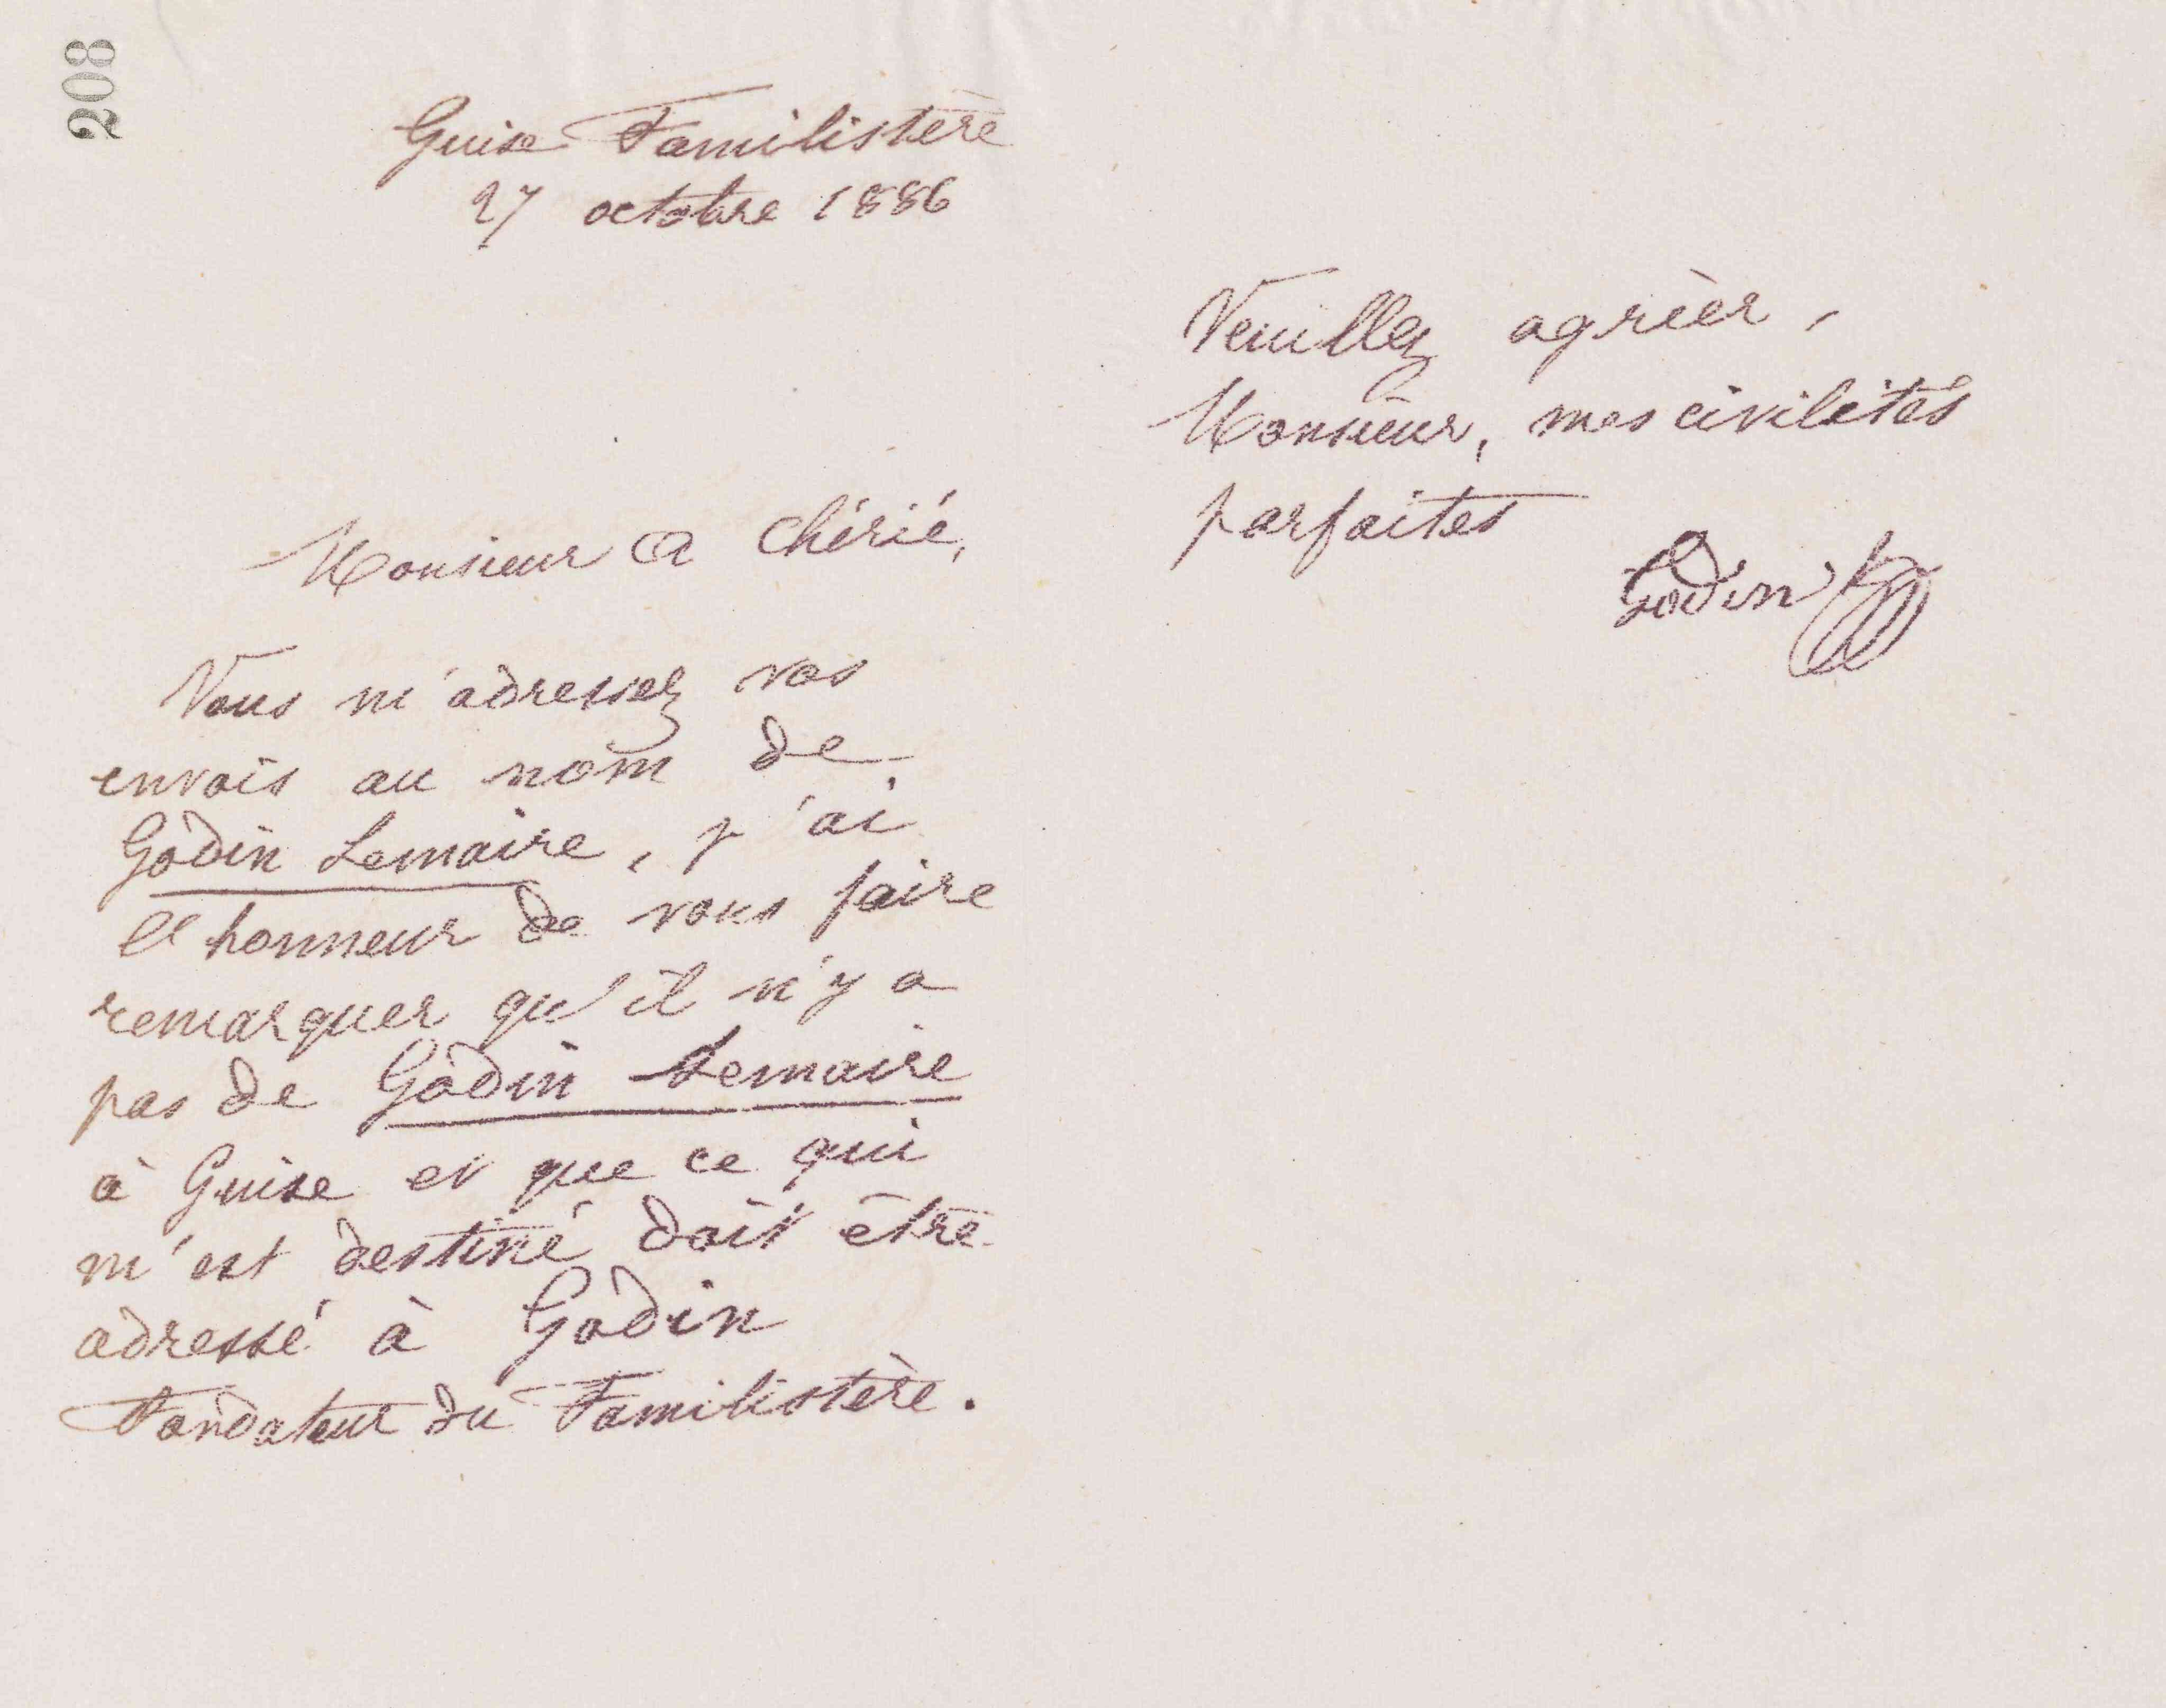 208
Guise Familistère
27 octobre 1886
Monsieur A Chérié,
Vous m'adressez vos
envois au nom de
Godin Lemaire, j'ai
l'honneur de vous faire
remarquer qu'il n'y a
pas de Godin Lemaire
à Guise et que ce qui
m'est destiné doit être
adressé à Godin
Fondateur du Familistère.
Veuillez agréer,
Monsieur, mes civilités
parfaites
Godin